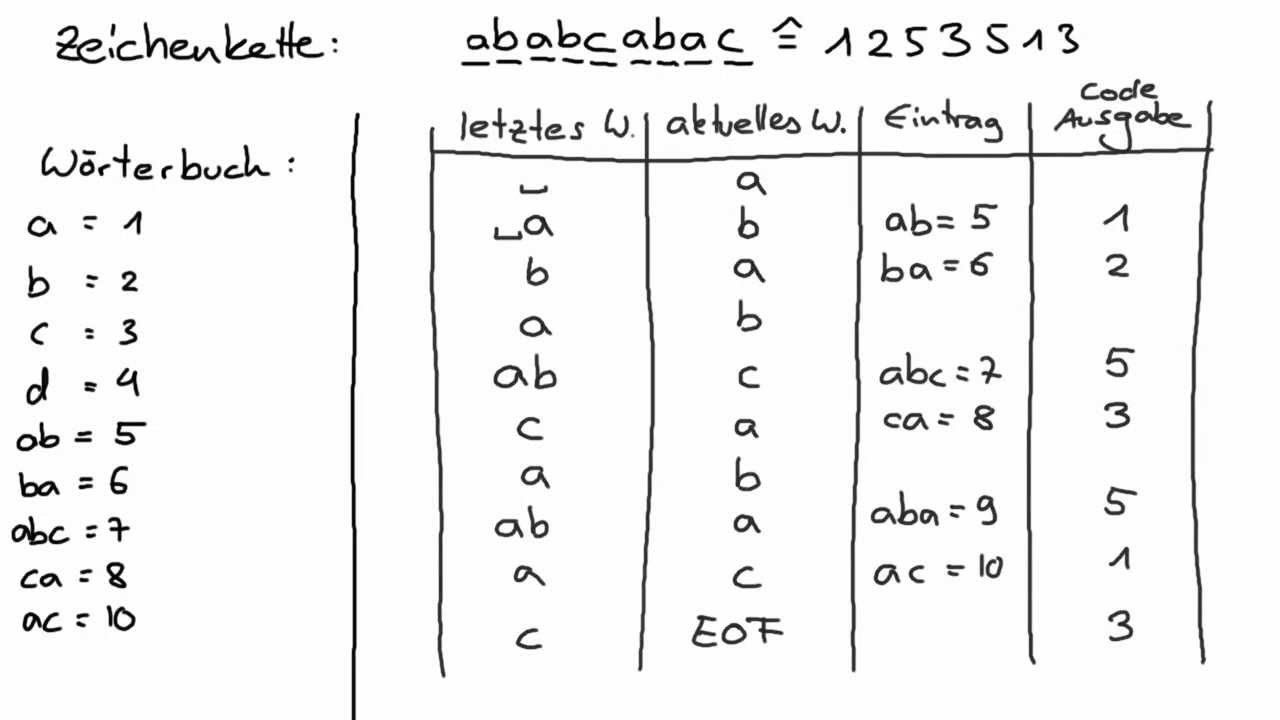 Zeichenkette: ababcabac ≙ 1253513
Wörterbuch:
a = 1
b = 2
c = 3
d = 4
ab = 5
ba = 6
abc = 7
ca = 8
ac = 10
letztes W. aktuelles W. Eintrag Code Ausgabe
␣ a
␣a b ab = 5 1
b a ba = 6 2
a b
ab c abc = 7 5
c a ca = 8 3
a b
ab a aba = 9 5
a c ac = 10 1
c EOF 3